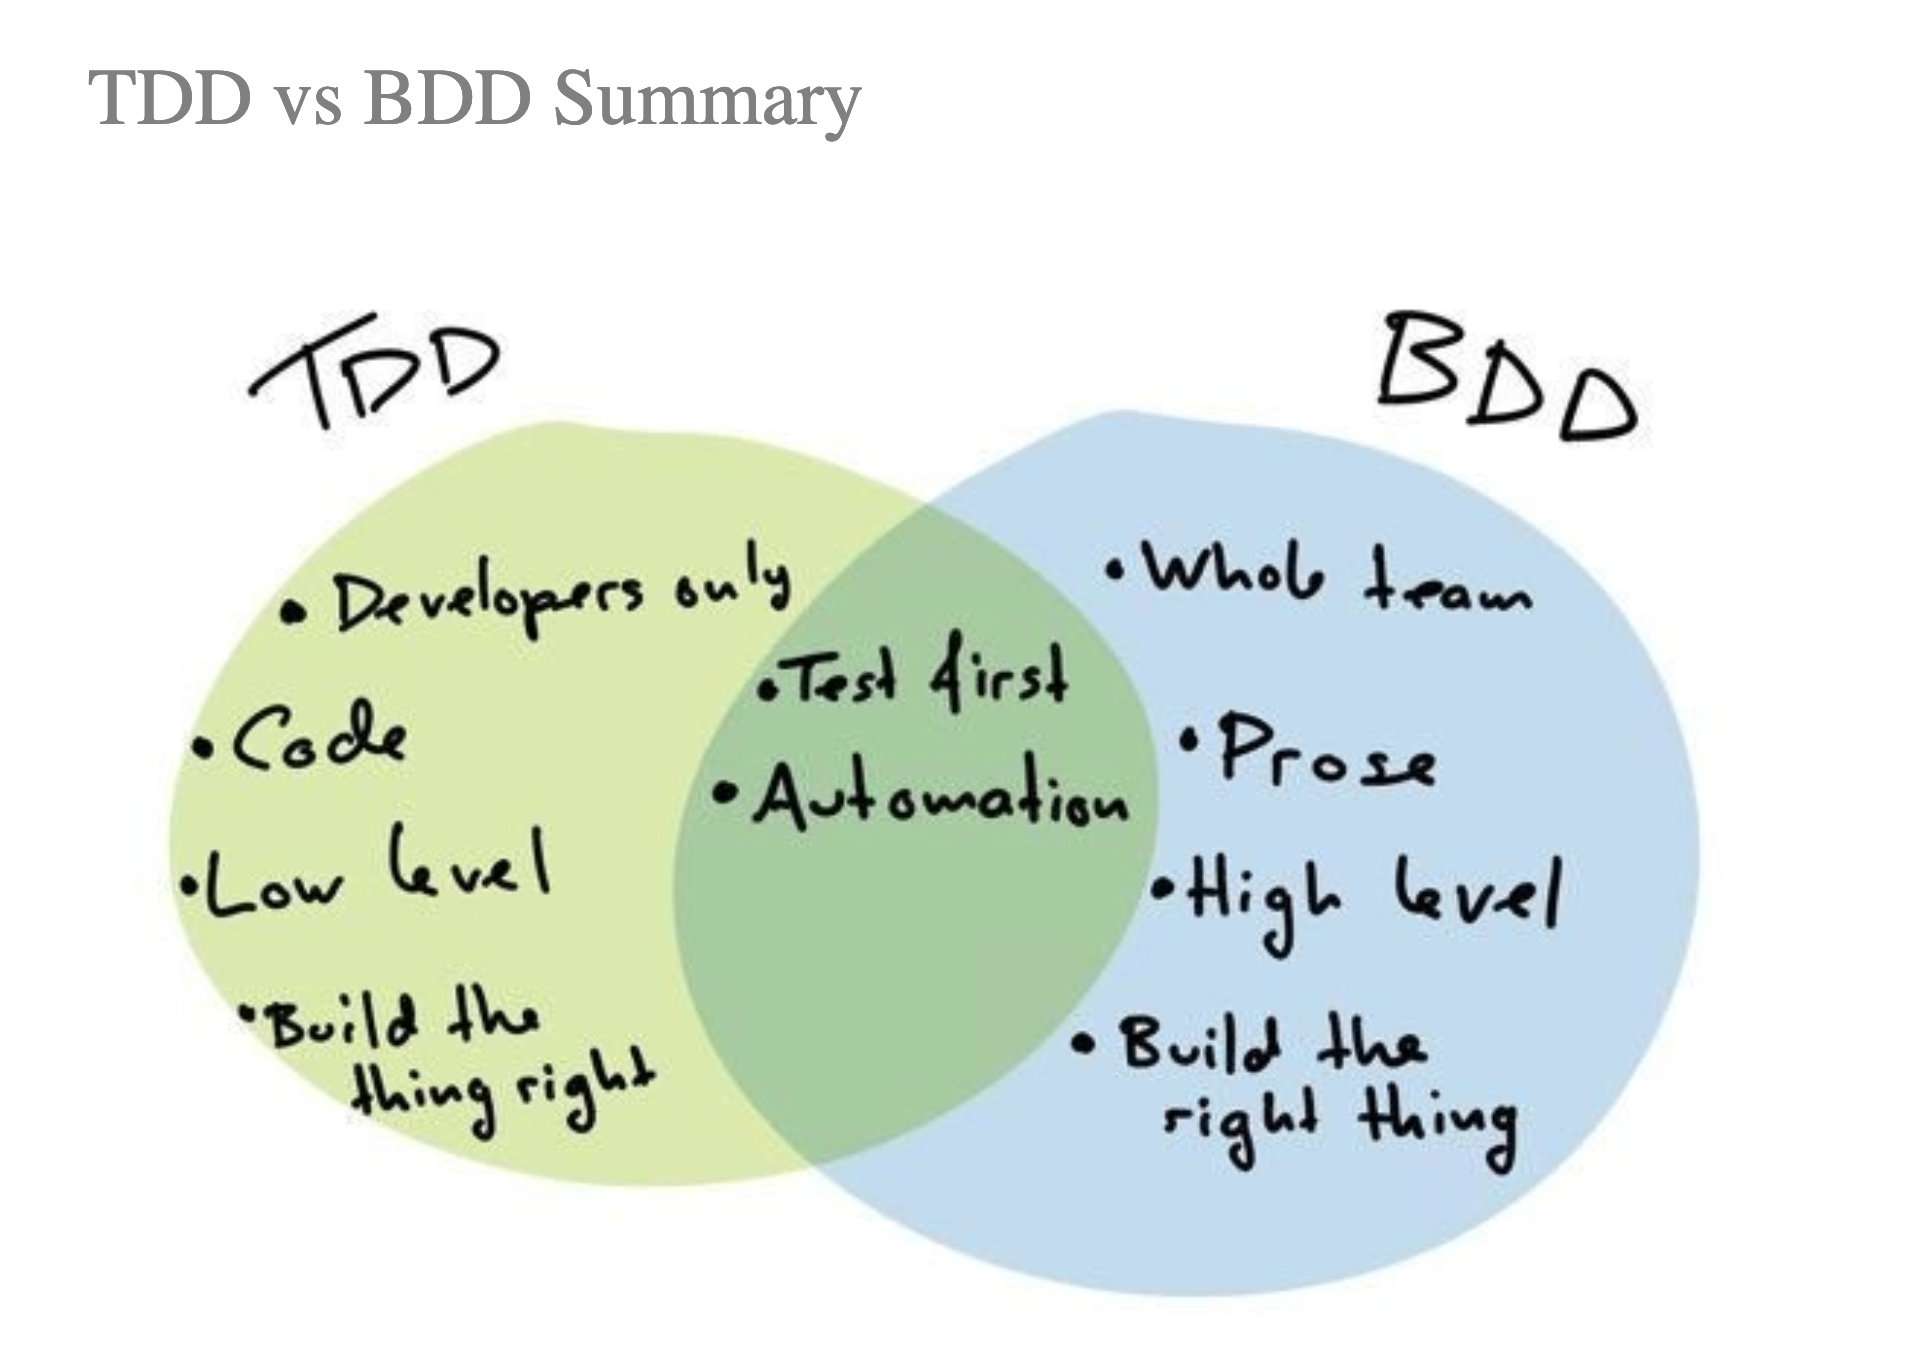 TDD vs BDD Summary
TDD
BDD
• Developers only
• Code
• Low level
• Build the
thing right
• Test first
• Automation
• Whole team
• Prose
• High level
• Build the
right thing